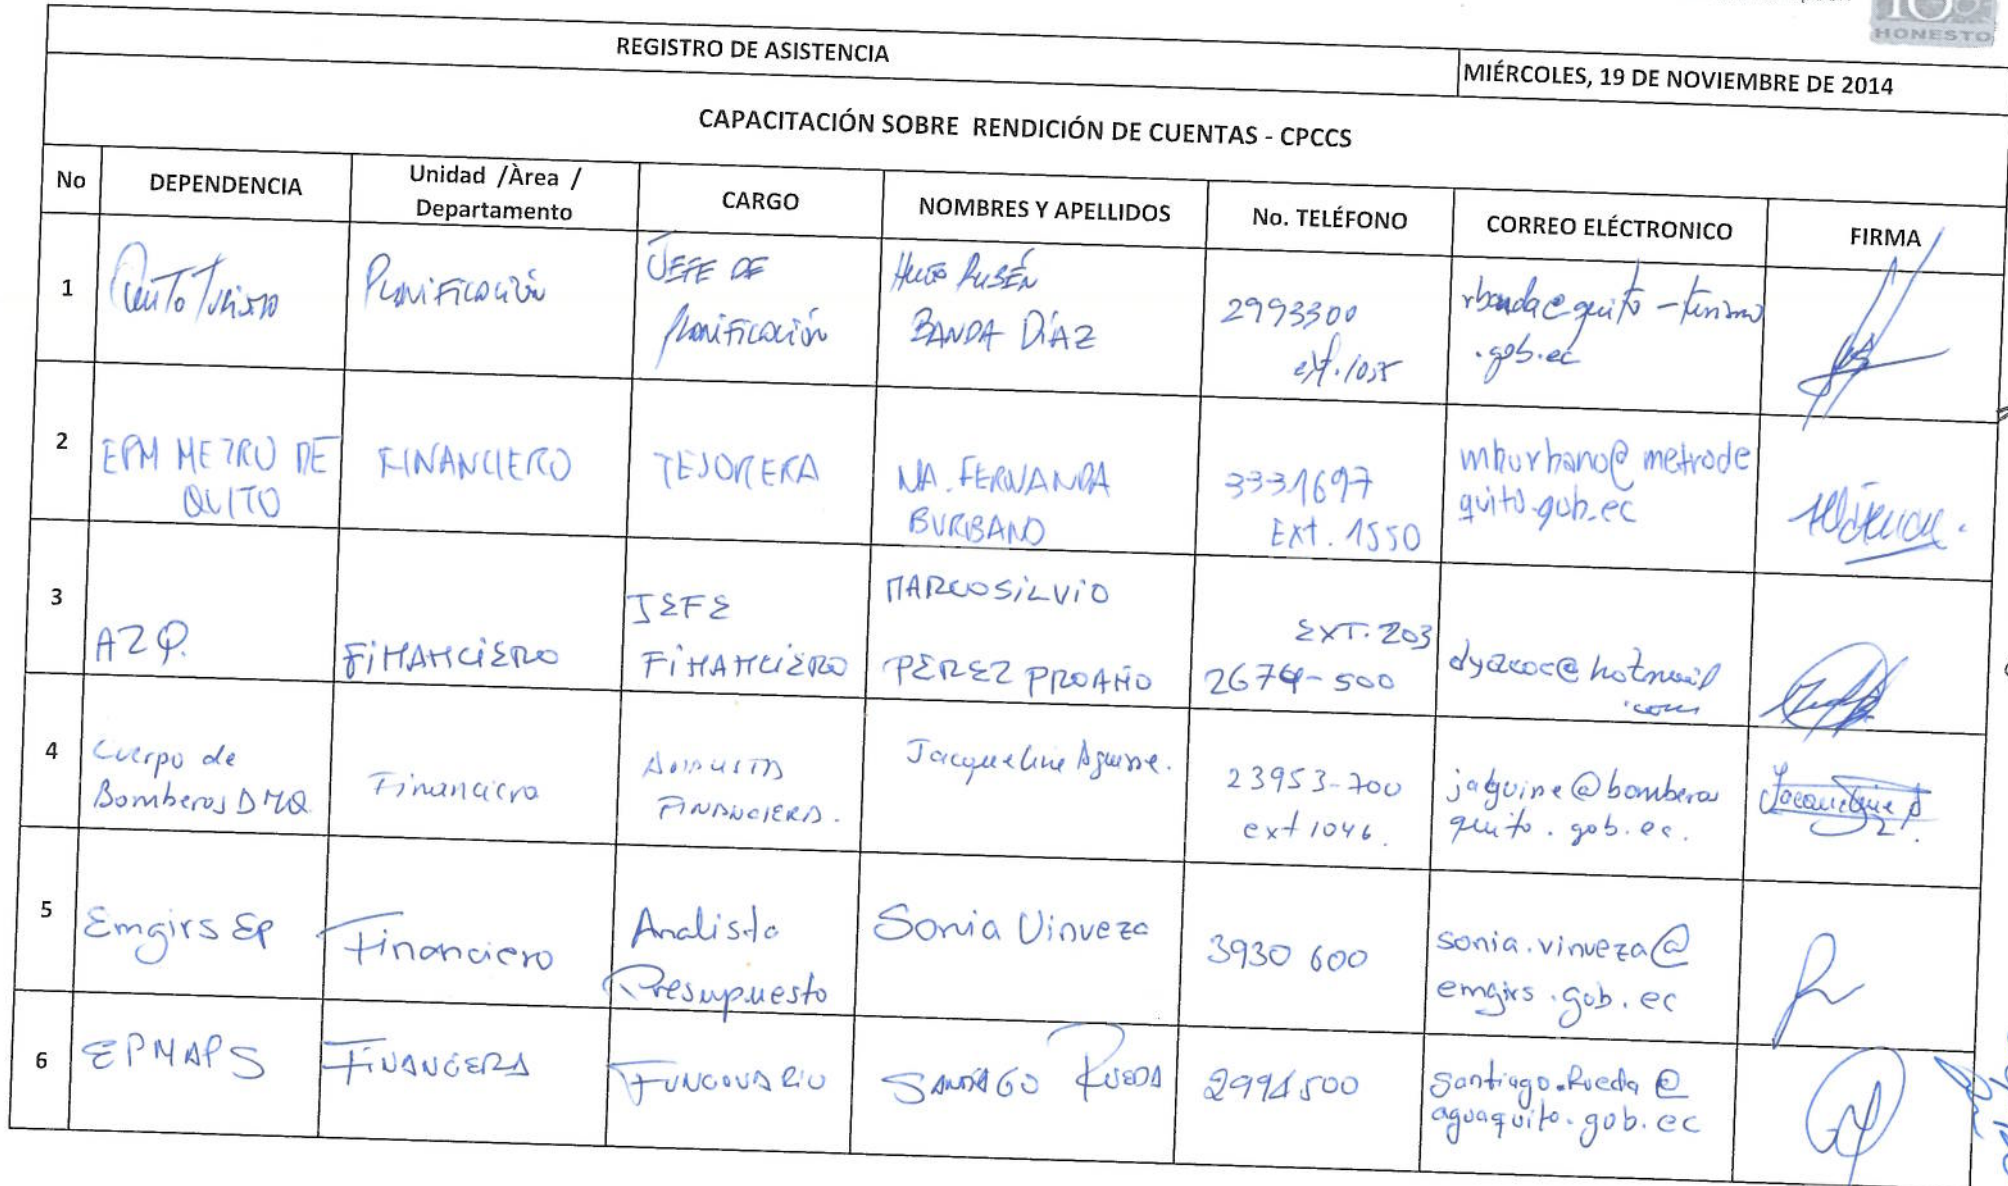 HONESTO
REGISTRO DE ASISTENCIA
MIÉRCOLES, 19 DE NOVIEMBRE DE 2014
CAPACITACIÓN SOBRE RENDICIÓN DE CUENTAS - CPCCS
No DEPENDENCIA Unidad /Àrea / Departamento CARGO NOMBRES Y APELLIDOS No. TELÉFONO CORREO ELÉCTRONICO FIRMA
1 Quito Turismo Planificación JEFE DE
Planificación
HUGO RUBÉN
BANDA DÍAZ
2993300
ext. 1035
rbanda@quito-turismo
.gob.ec
2 EPM METRO DE
QUITO
FINANCIERO TESORERA MA. FERNANDA
BURBANO
3331697
Ext. 1550
mburbano@metrode
quito.gob.ec
3 AZQ. FiNANCiERO JEFE
FiNANCiERO
MARCO SiLViO
PEREZ PROAÑO
EXT. 203
2674-500
@hotmail
.com
4 Cuerpo de
Bomberos DMQ
Financiero
FINANCIERA.
Jacqueline Aguirre.
23953-700
ext 1046.
jaguirre@bomberos
quito.gob.ec.
5 Emgirs EP Financiero Analista
Presupuesto
Sonia Vinueza 3930 600 sonia.vinueza@
emgirs.gob.ec
6 EPMAPS FINANCIERA FUNCIONARIO SANTIAGO RUEDA 2994500 santiago.Rueda@
aguaquito.gob.ec